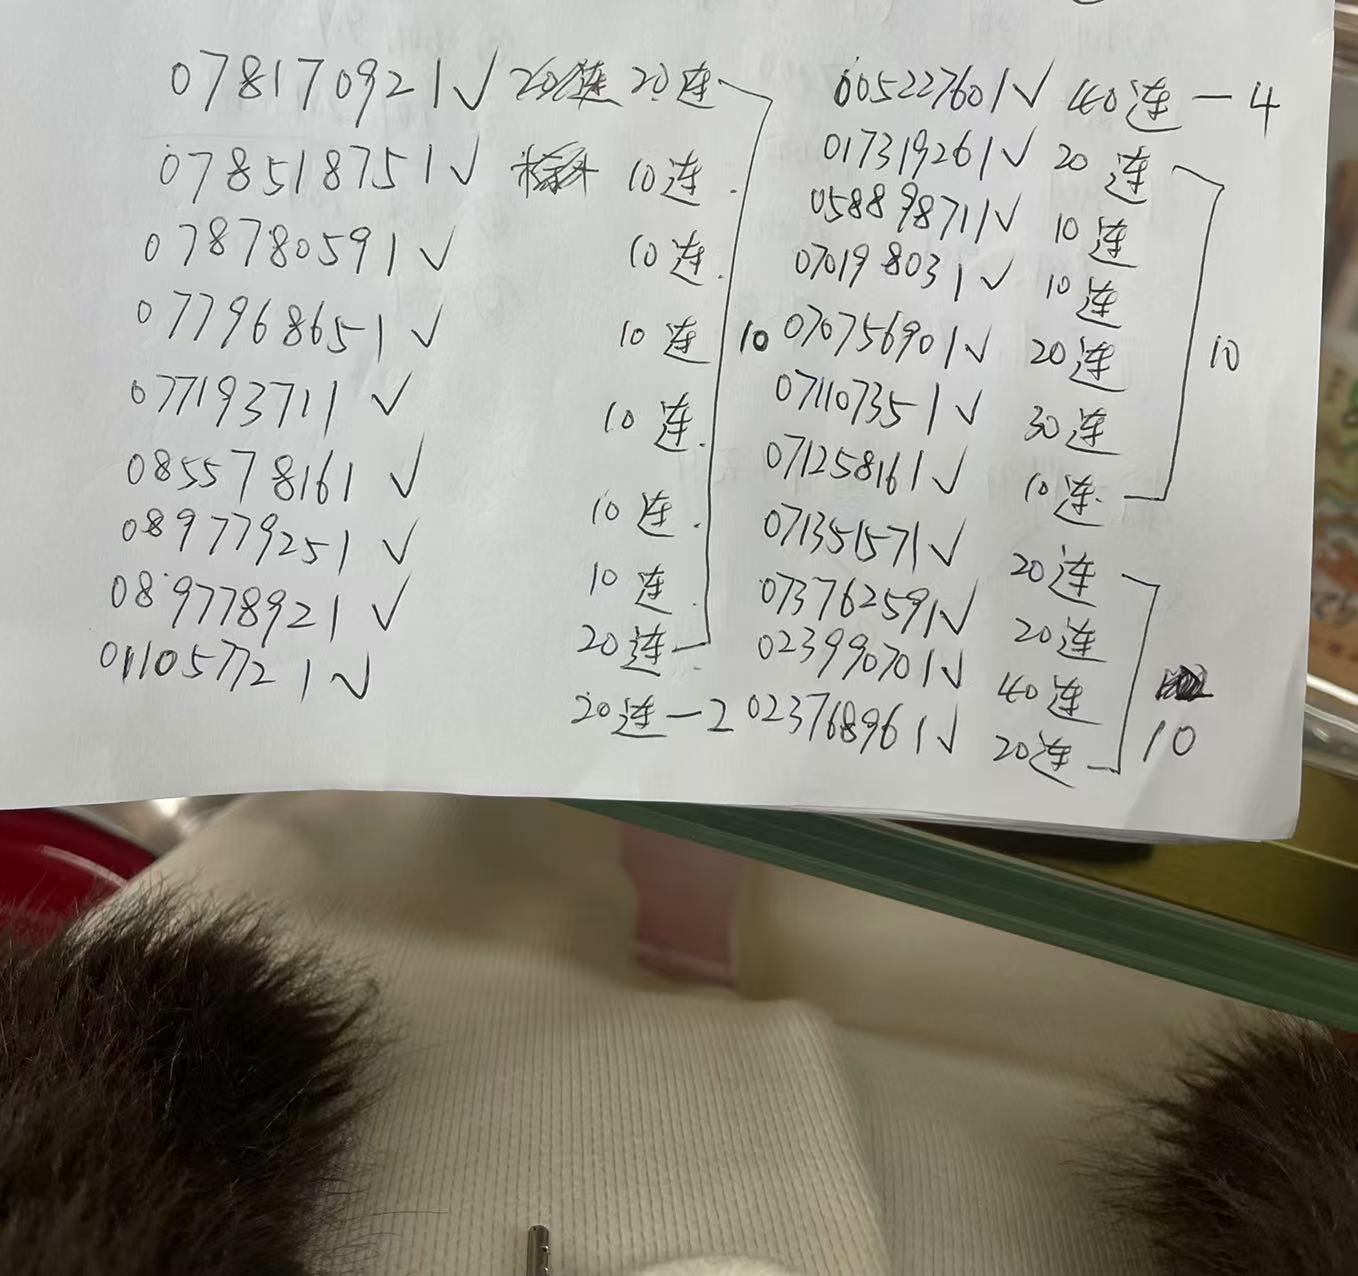 078170921√ 20连 20连
078518751√ 10连
078780591√ 10连
077968651√ 10连
077193711√ 10连
085578161√ 10连
089779251√ 10连
089778921√ 20连
10
011057721√ 20连-2
005227601√ 40连-4
017319261√ 20连
058898711√ 10连
070198031√ 10连
070756901√ 20连
071107351√ 30连
071258161√ 10连
10
071351571√ 20连
073762591√ 20连
023990701√ 40连
023768961√ 20连
10